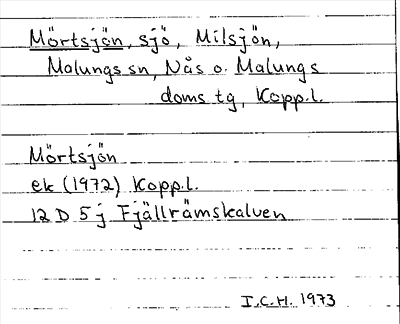 Mörtsjön, sjö, Milsjön,
Malungs sn, Nås o. Malungs
doms tg, Kopp.l.
Mörtsjön
ek (1972) Kopp.l.
12 D 5 j Fjällrämskalven
I.C.H. 1973